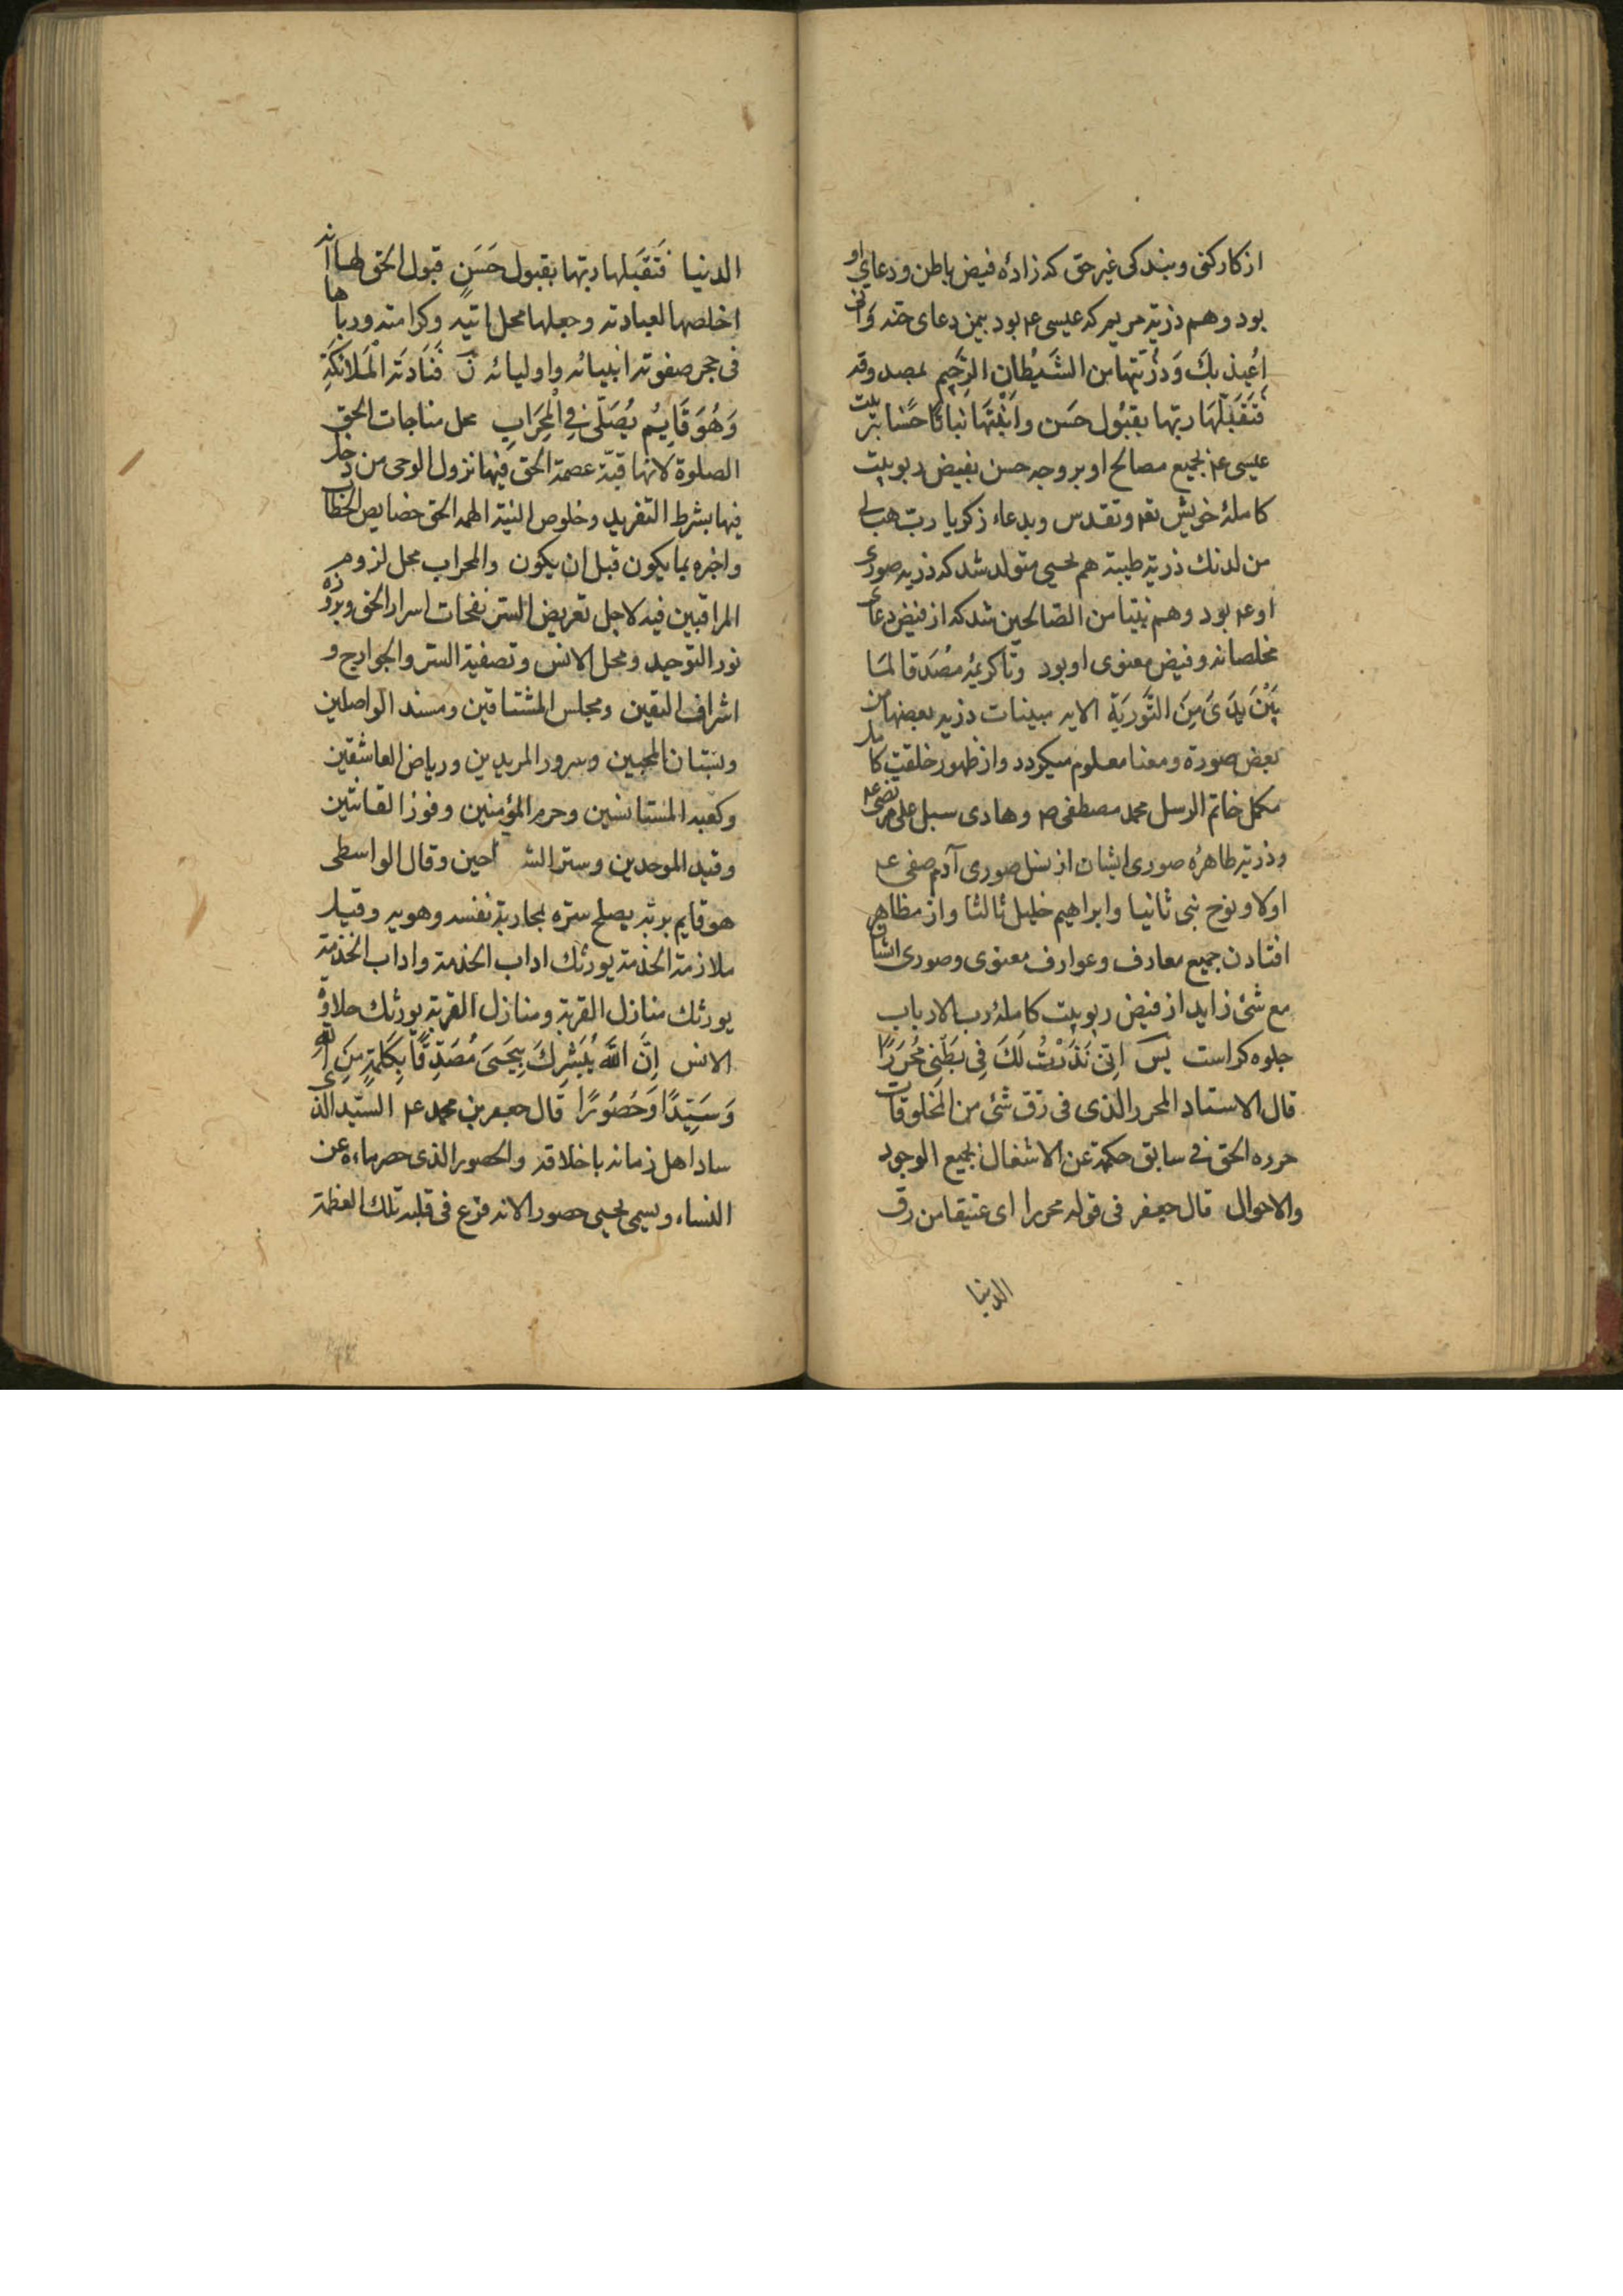 از کارکنی و بندکی غیر حق که زادهٔ فیض باطن و دعای او
بود و هم ذریة مریم که عیسی ع‍م بود بیمن دعای حنه وَانی
اُعیذُ بِكَ وَذُرّیَّتها من الشَّیْطانِ الرَّجیم لمصد وقه
فَتَقَبَّلَهَا ربّها بِقَبُول حَسَن وانبَتَهَا نباتًا حَسَنا تربیت
عیسی ع‍م بجمیع مصالح او بر وجه حسن بفیض ربوبیت
کاملهٔ خویش تع‍م و تقدس و بدعاء زکریا ربّ هب لی
من لدنك ذریة طیبة هم یحیی متولد شد که ذریه صوری
او ع‍م بود و هم نبیّا من الصّالحین شد که از فیض دعای
مخلصانه و فیض معنوی او بود و تا کریمهٔ مُصَدقا لمَا
بَیْنَ یَدَیَ مِنَ التَّورَیَةِ الایه مبینات ذریه بعضها من
بعض صورة و معنا معلوم میکردد و از ظهور خلقت کامل
مکمل خاتم الرسل محمد مصطفی ص‍م و هادی سبل علی مرتضی ع‍م
و ذریة طاهرهٔ صوری ایشان از نسل صوری آدم صفی ع‍م
اولا و نوح نبی ثانیا و ابراهیم خلیل ثالثا و از مظاهر
افتادن جمیع معارف و عوارف معنوی و صوری ایشان
مع شئ زاید از فیض ربوبیت کاملهٔ رب الارباب
جلوه کر است یس اِنّی نَذَرْتُ لَكَ فِی بَطْنِی مُحَرَرًا
قال الاستاد المحرر الذی فی رق شئ من المخلوقات
حرره الحق فی سابق حکمة عن الاشغال بجمیع الوجوه
والاحوال قال جعفر فی قوله محررا ای عتیقا من رق
الدنیا
الدنیا فَتَقَبَلها ربّها بقبول حَسَنٍ قبول الحق لها انه
اخلصها لعبادته وجعلها محل اتیه وکرامته ورباها
فی حجر صفوته انبیائه واولیائه نَ فَنَادَتَه الْمَلائکَةِ
وَهُوَ قَایِمُ یُصَلّی فِی الْمِحَرَابِ محل مناجات الحق
الصلوة لانها قبّة عصمة الحق فیها نزول الوحی من دخل
فیها بشرط التفرید وخلوص النیة الهمه الحق خصایص الخطاب
واخبره بما یکون قبل ان یکون والمحراب محل لزوم
المراقبین فیه لاجل تعریض السّر نفحات اسرار الحق وبرزه
نور التوحید ومحل الانس وتصفیة السّر والجوارح و
اشراف الیقین ومجلس المشتاقین ومسند الواصلین
وبستان المحبین وسرور المریدین وریاض العاشقین
وکعبه المستانسین وحرم المؤمنین وفوز القانتین
وقید الموحدین وستر الشـ احین وقال الواسطی
هو قایم بربّه یصلح سرّه بمحاربة نفسه وهویه وقیل
ملازمة الخدمة یورثك اداب الخدمة واداب الخدمة
یورثك منازل القربة ومنازل القربة یورثك حلاوة
الانس اِنَّ اللهَ یُبَشِرُكَ بِیَحیَی مُصَدِّقًا بِکَلِمَةٍ مِنَ الله
وَسَیّدًا وَحَصُورًا قال جعفر بن محمد ع‍م السّید الذی
ساد اهل زمانه باخلاقه والحصور الذی حصر ماءه عن
النساء ویسمی یحیی حصورا لانه فزع فی قلبه تلك العظمة